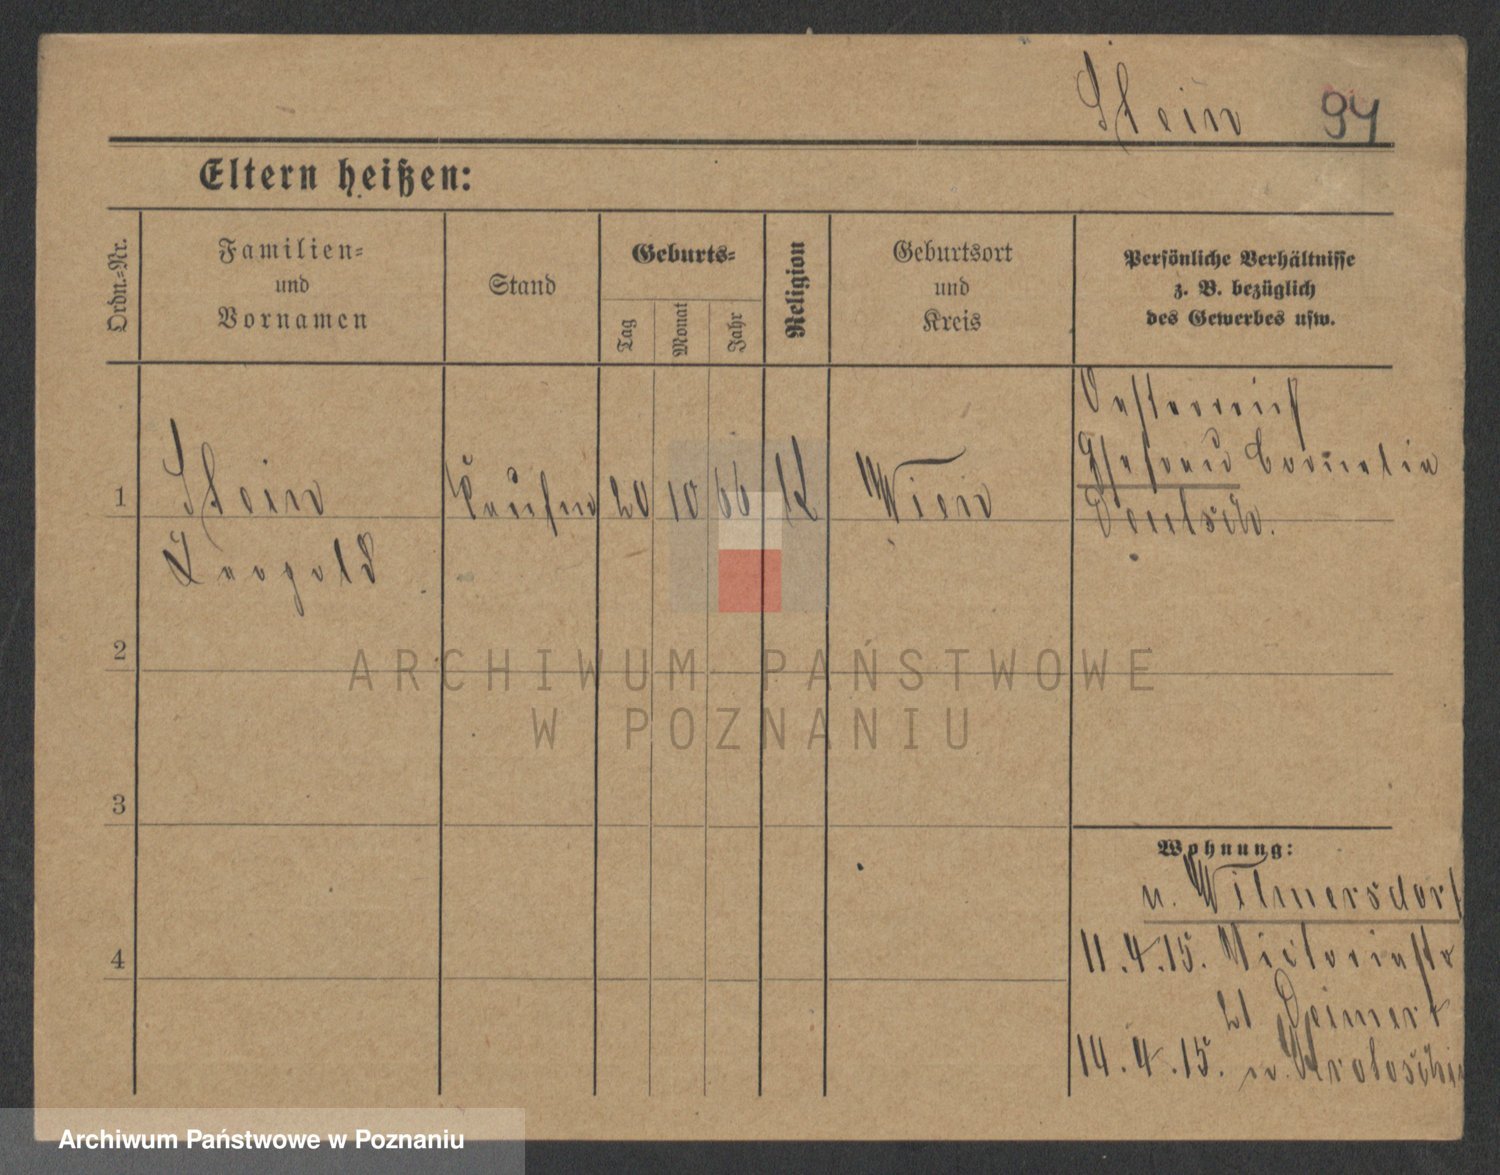 Stein 94
Eltern heißen:
Ordn.-Nr.
Familien-
und
Vornamen
Stand
Geburts-
Tag
Monat
Jahr
Religion
Geburtsort
und
Kreis
Persönliche Verhältnisse
z. B. bezüglich
des Gewerbes usw.
1
Stein
Leopold
Kaufm
20 10 66
K
Wien
Oesterreich
Ehefrau Cornelia
Deutsch.
2
3
4
Wohnung:
n. Wilmersdorf
11.4.15. Victoriastr
21
14.4.15. n. Krotoschin
ARCHIWUM PAŃSTWOWE
W POZNANIU
Archiwum Państwowe w Poznaniu